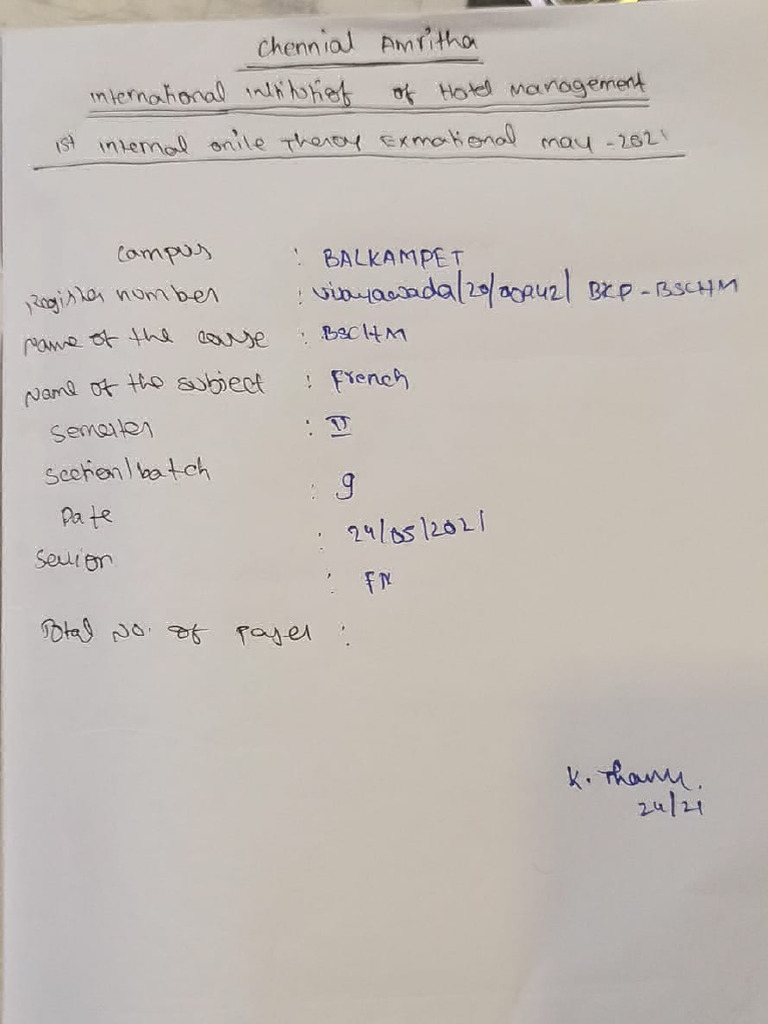 Chennial Amritha
International Intitutief of Hotel Management
1st internal onile Theroy Exmational may - 2021
campus : BALKAMPET
Register number : vijayawada/20/00242/ BKP - BSCHM
name of the course : BSCHM
Name of the subject : French
semester : II
section/batch : 9
Date : 24/05/2021
Session : FN
Total No. of pages :
K. Thanu.
24/21